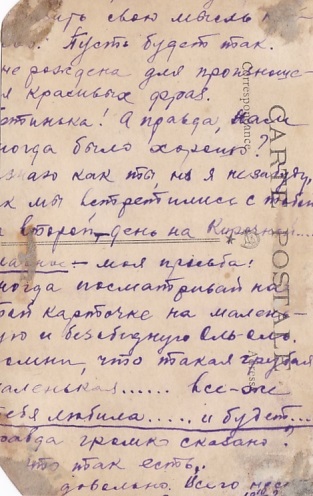 ить свою мысль
Пусть будет так.
не рождена для произнесе-
я красивых фраз.
ртинька! А правда, нам
ногда было хорошо?
знаю как ты но я не забуду,
к мы встретились с тобой
второй день на Кирочной....
лавное - моя просьба:
ногда посматривай на
карточке на малень-
ую и безобидную Ель-ель.
омни, что такая грубая
маленькая...... все-же
тебя любила..... и будет...
равда громко сказано?
что так есть,
довольно. Всего
CARTE POSTALE
Correspondance
Adresse